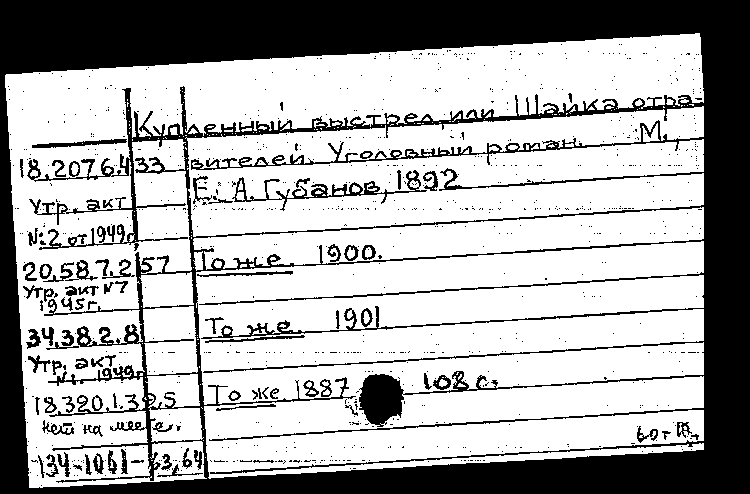 Купленный выстрел, или Шайка отра-
18.207.6.433 вителей. Уголовный роман. М.,
Утр. акт Е. А. Губанов, 1892
№2 от 1949г.
20.58.7.257 То же. 1900.
Утр. акт №7
1945г.
34.38.2.8 То же. 1901
Утр. акт
№1. 1949г.
18.320.1.3 То же 1887 108 с.
нет на месте.
134-1061-63,64